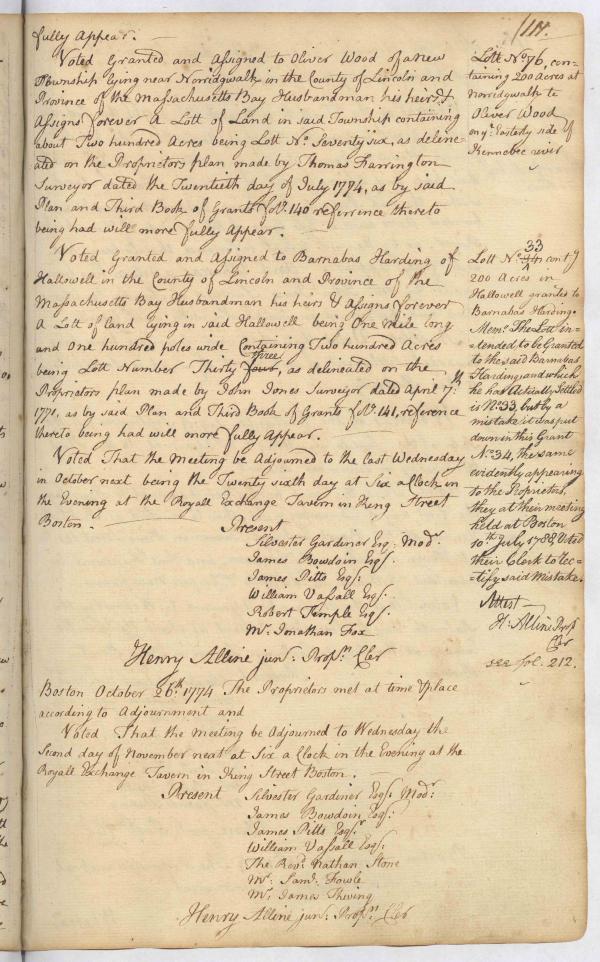 fully Appear.
Voted Granted and Assigned to Oliver Wood of a New
Township lying near Norridgwalk in the County of Lincoln and
Province of the Massachusetts Bay Husbandman his heirs &
Assigns forever A Lott of Land in said Township containing
about Two hundred Acres being Lott No. Seventy six, as deline
ated on the Proprietors plan made by Thomas Farrington
Surveyor dated the Twentieth day of July 1774, as by said
Plan and Third Book of Grants fol. 140 referrence thereto
being had will more fully Appear.
Lott No. 76, con-
taining 200 Acres at
Norridgwalk to
Oliver Wood
on ye. Easterly side of
Kennebec river
Voted Granted and Assigned to Barnabas Harding of
Hallowell in the County of Lincoln and Province of the
Massachusetts Bay Husbandman his heirs & Assigns forever
A Lott of land lying in said Hallowell being One Mile long
and One hundred poles wide Containing Two hundred Acres
three
being Lott Number Thirty four, as delineated on the
Proprietors plan made by John Jones Surveyor dated April 7th.
1771, as by said Plan and Third Book of Grants fol. 141, reference
thereto being had will more fully Appear.
33
Lott No. 34 cont g
200 Acres in
Hallowell granted to
Barnabas Harding.
Memo. The Lott in-
-tended to be Granted
to the said Barnabas
Harding, and which
he has Actually Settled
is No. 33, but by a
mistake it was put
down in this Grant
No. 34, the same
evidently appearing
to the Proprietors,
they at their meeting
held at Boston
10th. July 1788 Voted
their Clerk to rec-
-tify said Mistake.
Attest
H: Alline Prop
Cler
see fol. 212.
Voted That the Meeting be Adjourned to the last Wednesday
in October next being the Twenty sixth day at Six a Clock in
the Evening at the Royall Exchange Tavern in King Street
Boston.
Present
Silvester Gardiner Esq: Modr.
James Bowdoin Esq.
James Pitts Esq:
William Vassall Esq:
Robert Temple Esq:
Mr. Jonathan Fox
Henry Alline junr. Propn. Cler
Boston October 26th. 1774 The Proprietors met at time & place
according to Adjournment and
Voted That the meeting be Adjourned to Wednesday the
Second day of November next at Six a Clock in the Evening at the
Royall Exchange Tavern in King Street Boston.
Present Silvester Gardiner Esq: Modr.
James Bowdoin Esq:
James Pitts Esqr.
William Vassall Esq:
The Revd. Nathan Stone
Mr. Saml. Fowle
Mr. James Thwing
Henry Alline junr. Propn. Cler